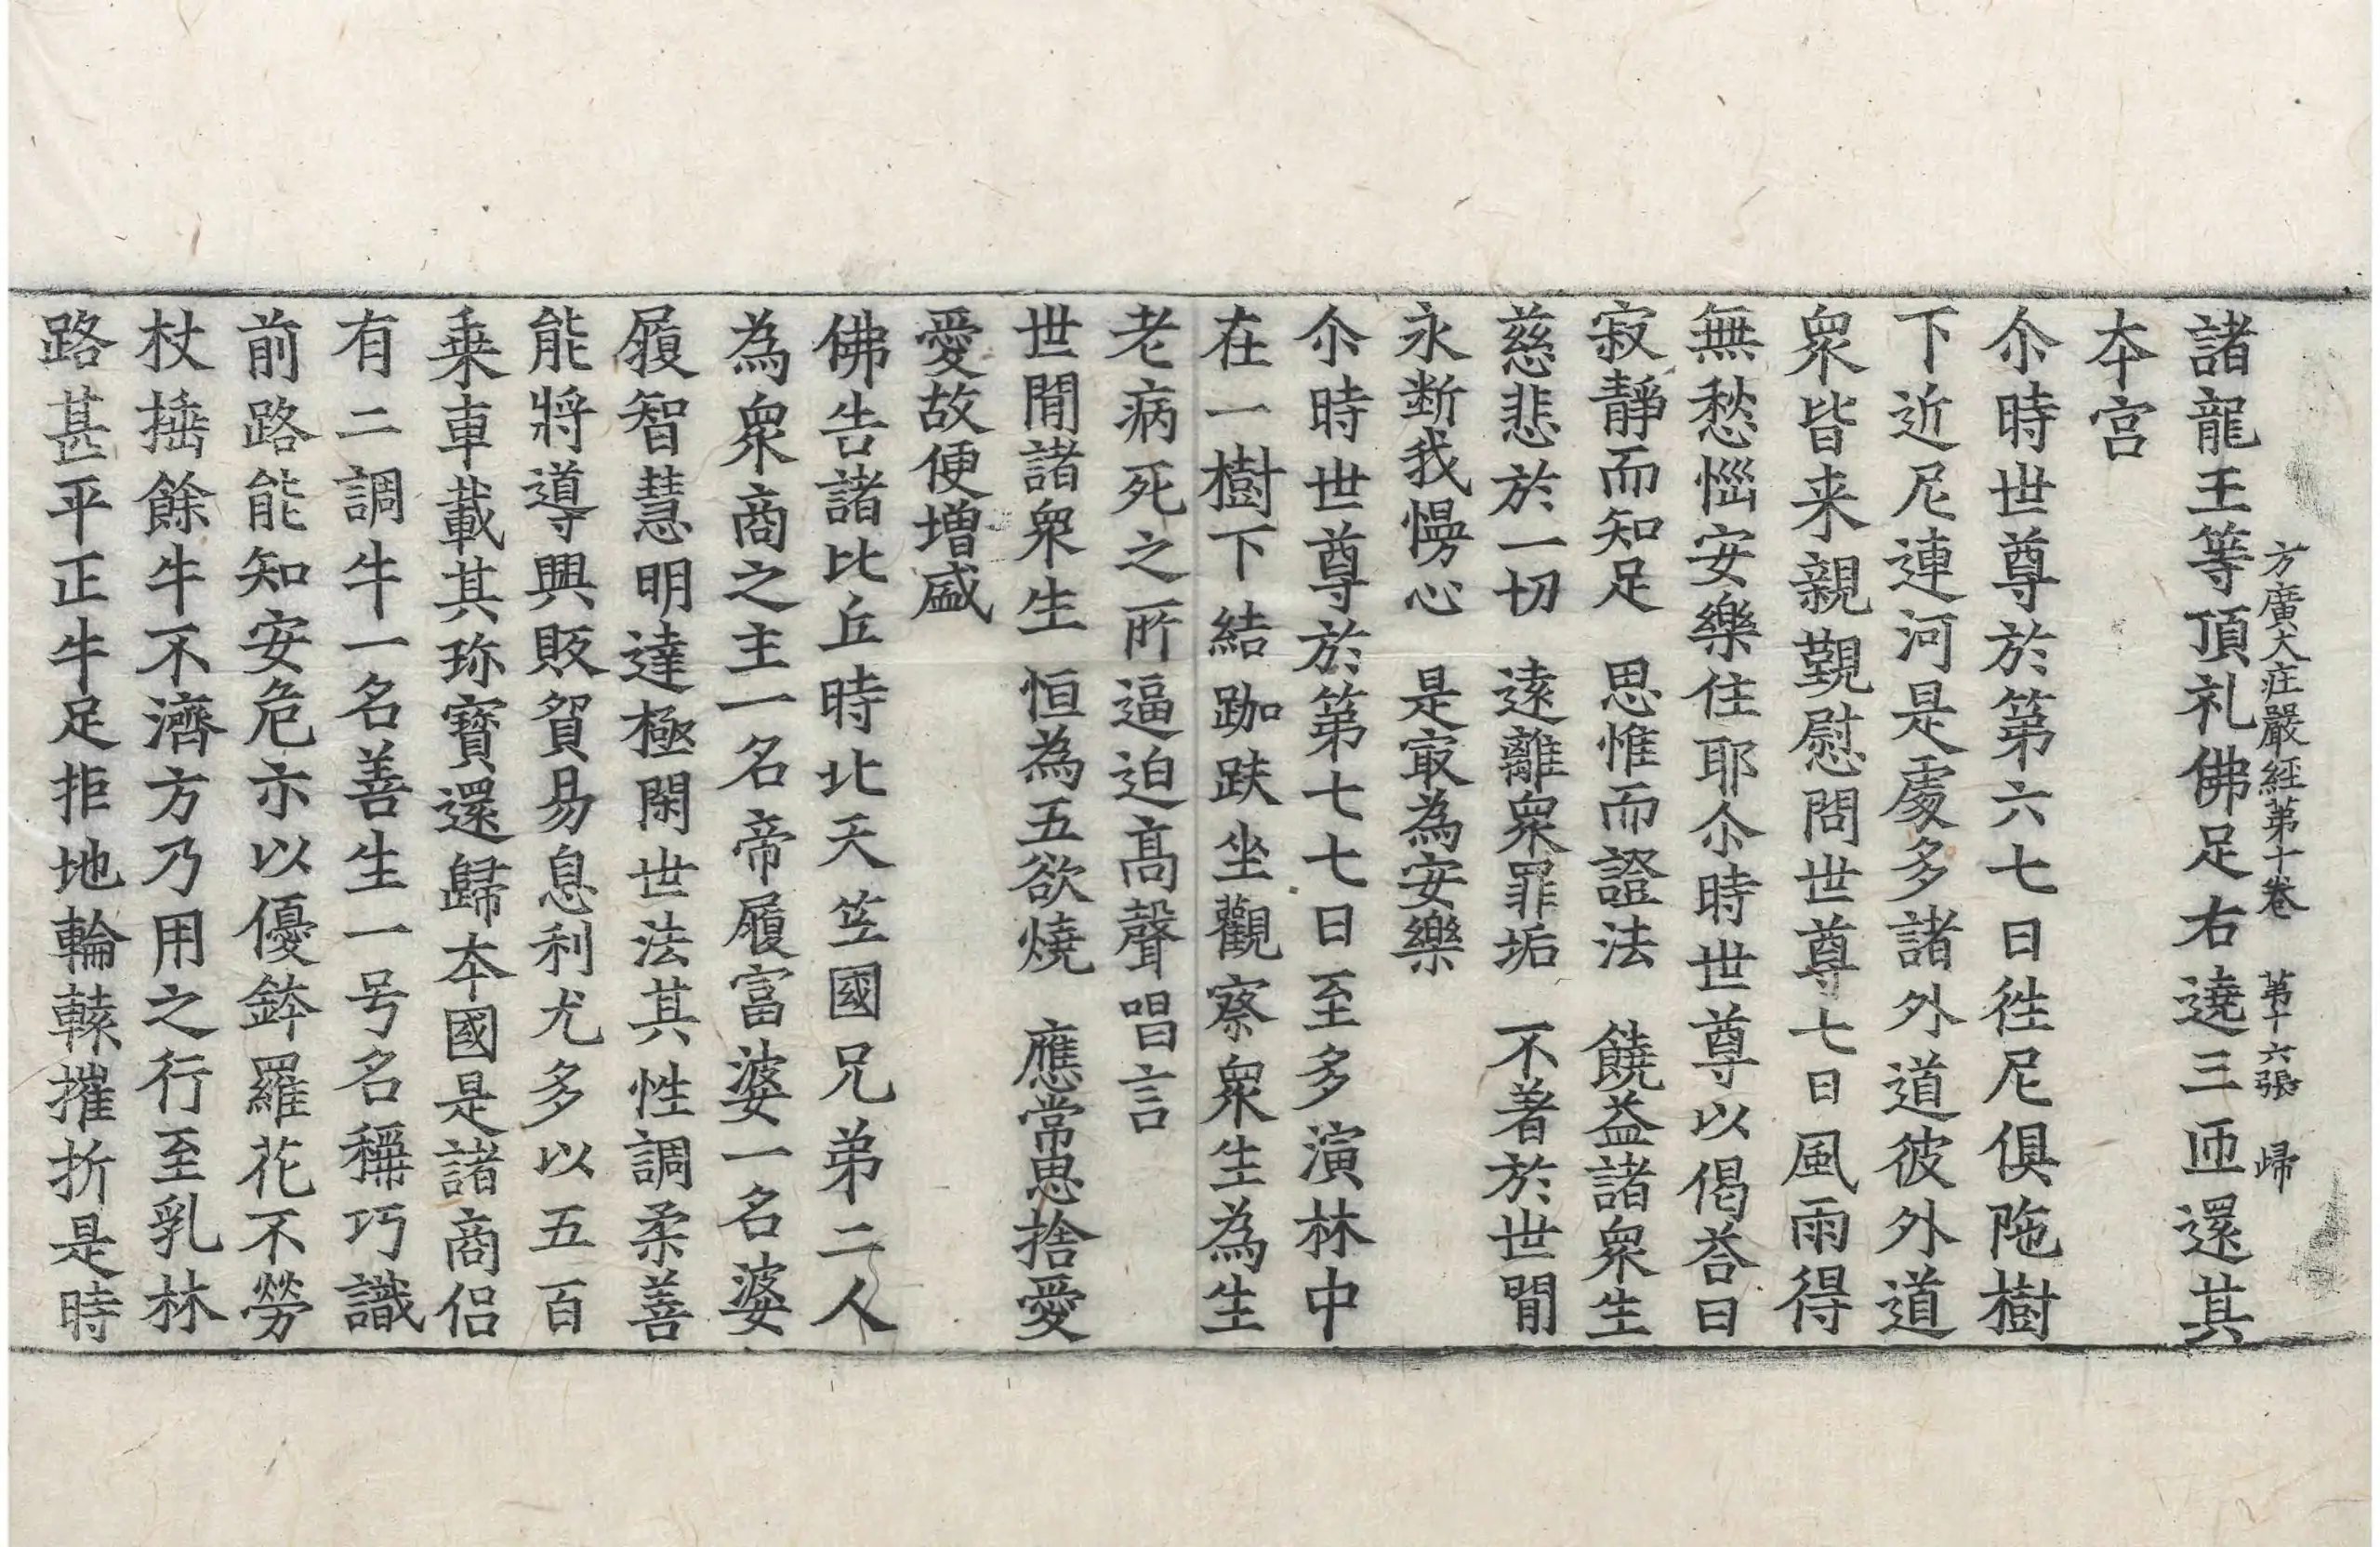 方廣大荘嚴經第十卷 第十六張 歸
諸龍王等頂礼佛足右遶三匝還其
夲宮
尒時世尊於第六七日徃尼俱陁樹
下近尼連河是處多諸外道彼外道
衆皆来親覲慰問世尊七日風雨得
無愁惱安樂住耶尒時世尊以偈荅曰
寂靜而知足 思惟而證法 饒益諸衆生
慈悲於一切 遠離衆罪垢 不著於世閒
永断我慢心 是㝡為安樂
尒時世尊於第七七日至多演林中
在一樹下結跏趺坐觀察衆生為生
老病死之所逼迫髙聲唱言
世閒諸衆生 恒為五欲燒 應常思捨愛
愛故便增盛
佛告諸比丘時北天竺國兄弟二人
為衆商之主一名帝履富婆一名婆
履智慧明達極閑世法其性調柔善
能將導興販貿易息利尤多以五百
乗車載其珎寳還歸夲國是諸商侣
有二調牛一名善生一号名稱巧識
前路能知安危示以優鉢羅花不勞
杖捶餘牛不濟方乃用之行至乳林
路甚平正牛足拒地輪轅摧折是時